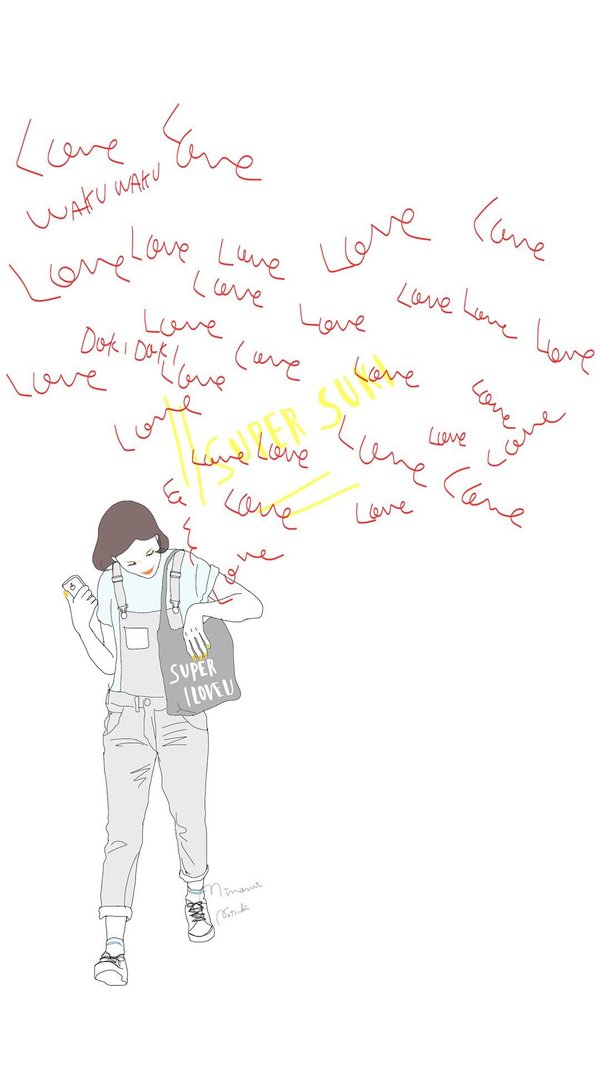 Love Love
WAKU WAKU
Love Love Love Love Love
Love
Love Love Love Love Love
DOKI DOKI Love
Love Love Love
Love Love
SUPER SUKI
Love Love Love Love
Love Love Love
Love Love
Love
SUPER
I LOVE U
Minami
Natsuki